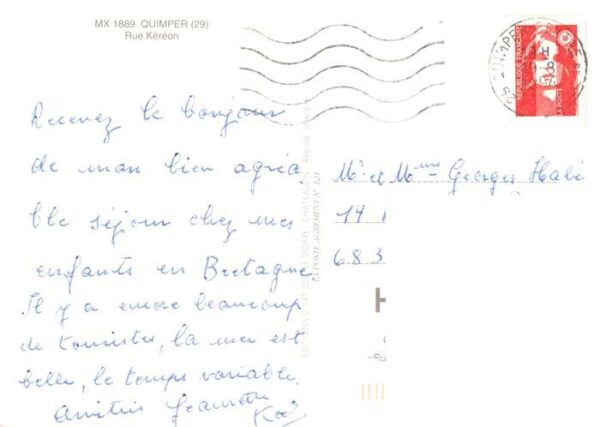 MX 1889 QUIMPER (29)
Rue Kéréon
REPUBLIQUE FRANÇAISE
LA POSTE
Recevez le bonjour
de mon bien agréa
ble séjour chez mes
enfants en Bretagne
Il y a encore beaucoup
de touristes, la mer est
belle, le temps variable.
Amitiés Jeannette
LA POSTE AGREMENT N° 121
Mr et Mme Georges
14
683